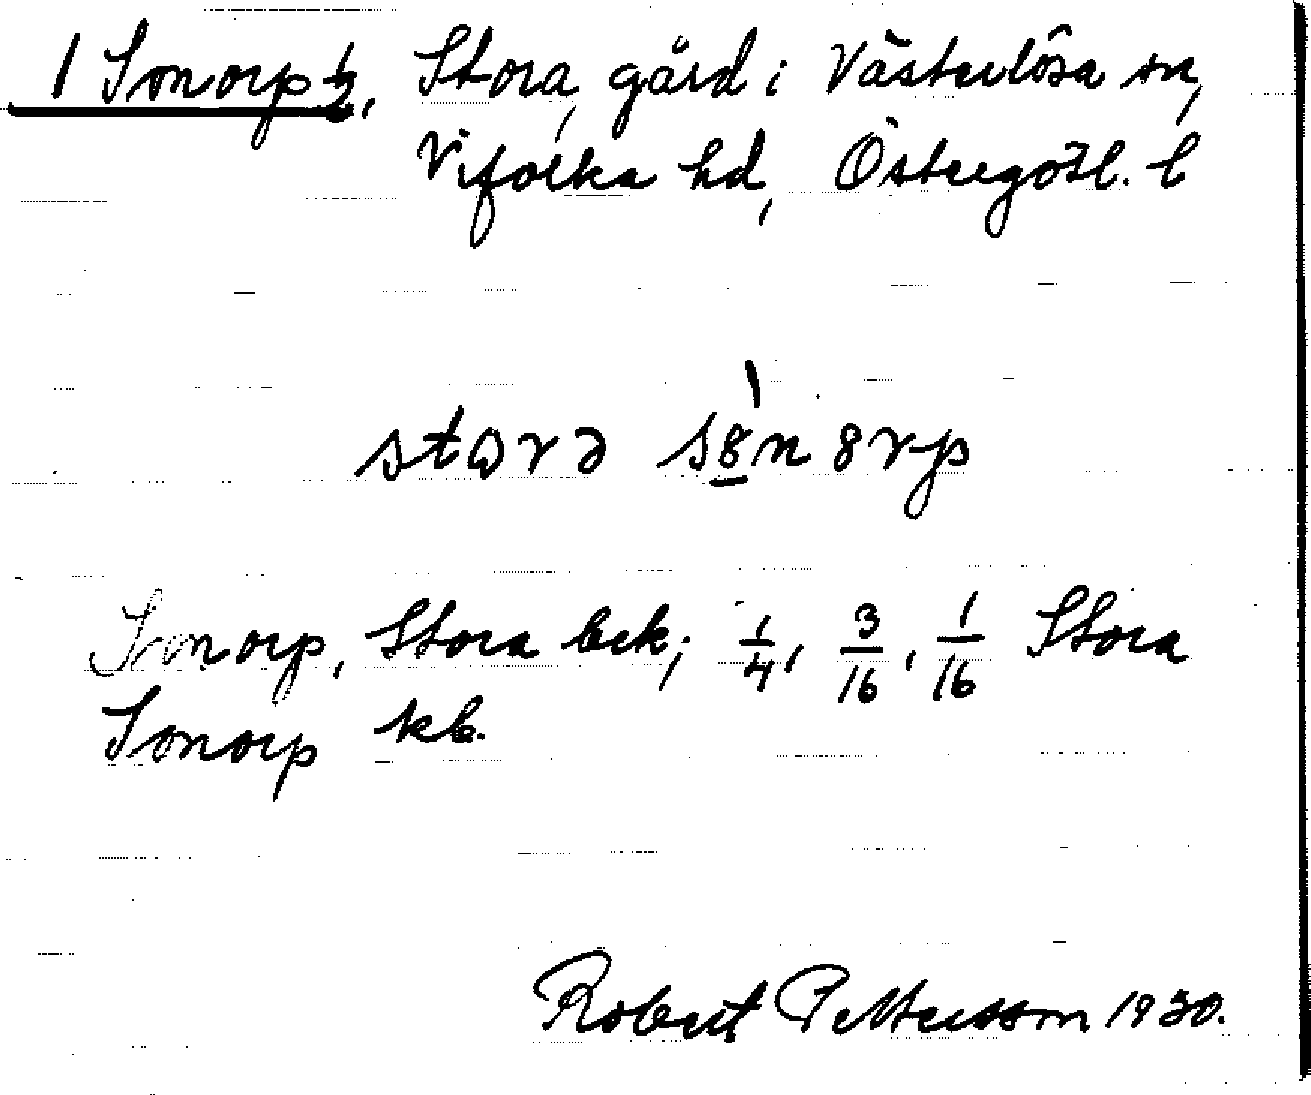 1 Sonorp ½, Stora, gård i Västerlösa sn,
Vifolka hd, Östergötl. l
Sonorp, Stora bek; 1/4, 3/16, 1/16 Stora
Sonorp kb.
Robert Pettersson 1930.